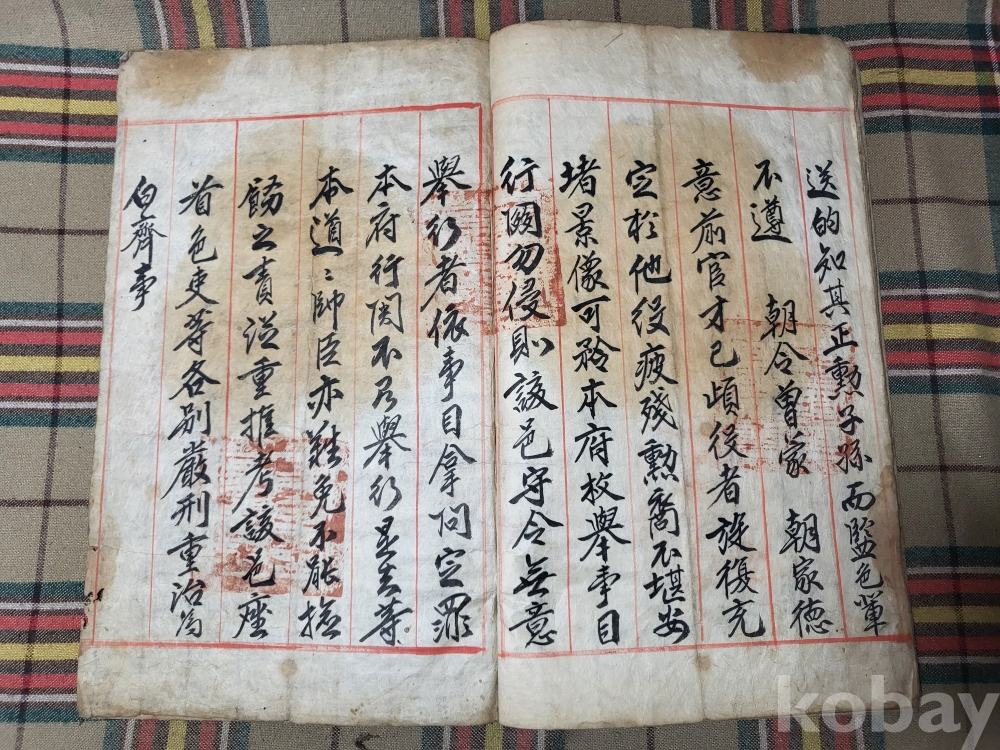 送的知其正勳子孫而監色輩
不遵 朝令曾蒙 朝家德
意前官才已頉役者旋復充
定於他役疲殘勳裔不堪安
堵景像可矜本府枚擧事目
行關勿侵則該邑守令無意
擧行者依事目拿问定罪
本府行関不乃擧行是去等
本道道帥臣亦難免不能撿
飭之責從重推考該色座
首色吏等各别嚴刑重治爲
白齊事
kobay